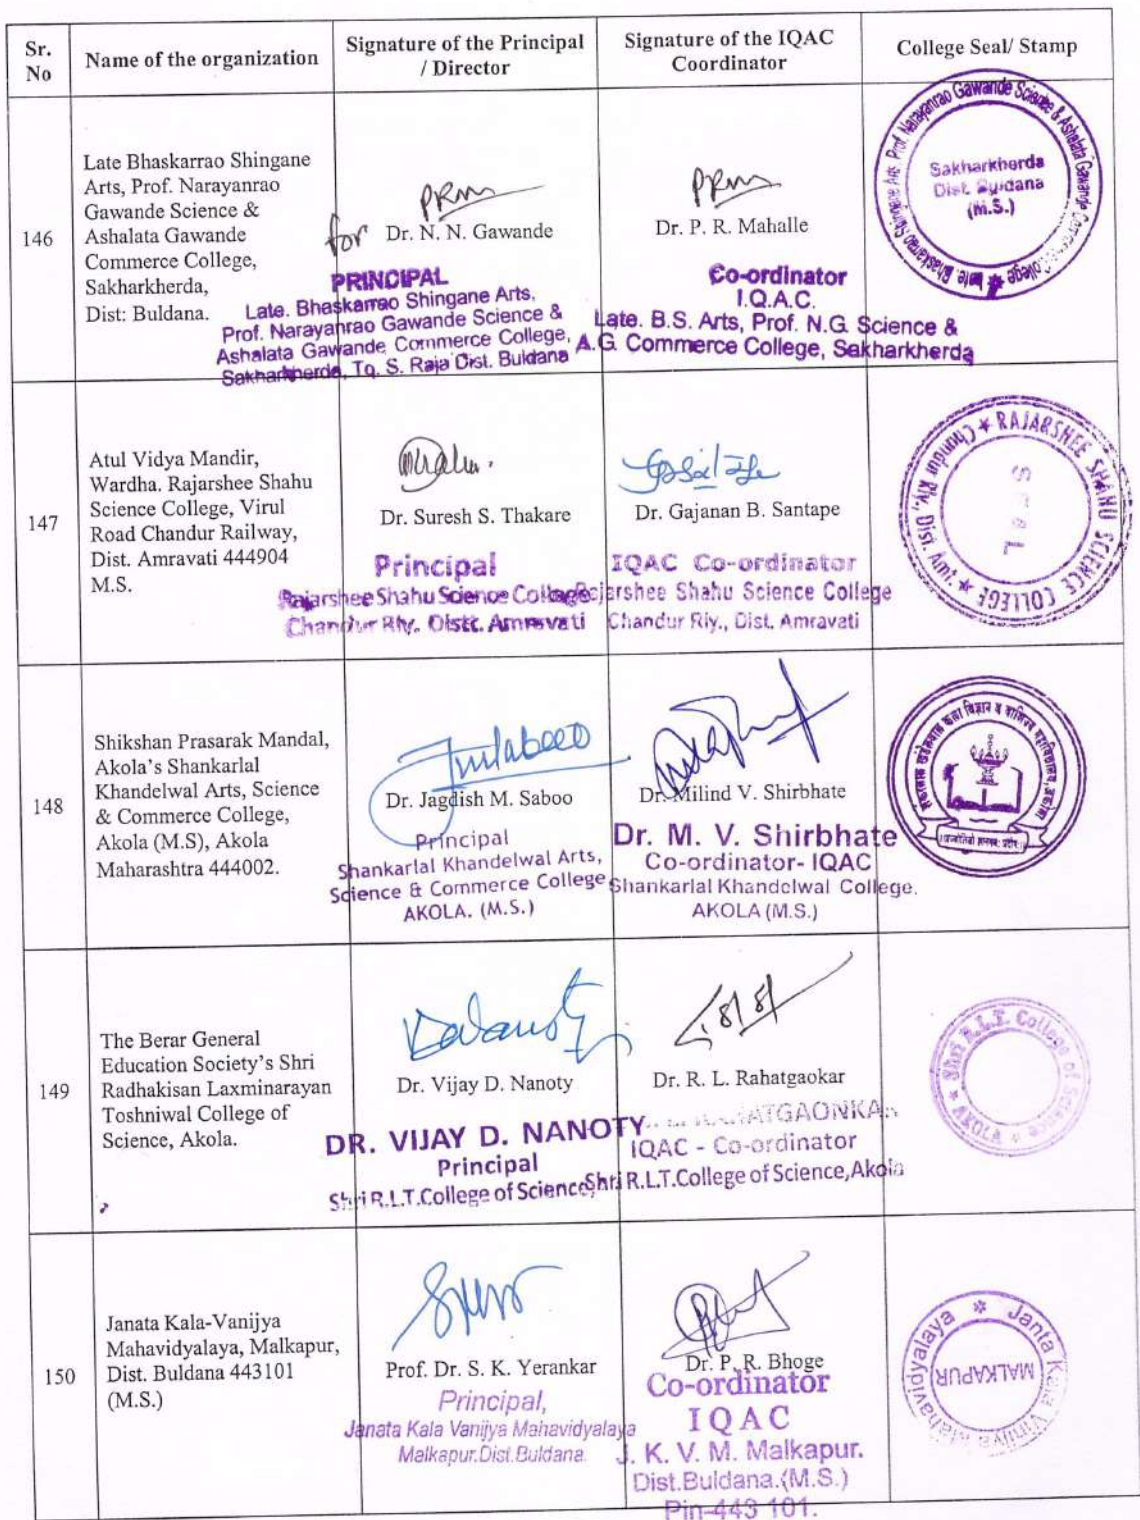 Sr. No
Name of the organization
Signature of the Principal / Director
Signature of the IQAC Coordinator
College Seal/ Stamp
146
Late Bhaskarrao Shingane
Arts, Prof. Narayanrao
Gawande Science &
Ashalata Gawande
Commerce College,
Sakharkherda,
Dist: Buldana.
for PRM
Dr. N. N. Gawande
PRINCIPAL
Late. Bhaskarrao Shingane Arts,
Prof. Narayanrao Gawande Science &
Ashalata Gawande Commerce College,
Sakharkherda, Tq. S. Raja Dist. Buldana
PRM
Dr. P. R. Mahalle
Co-ordinator
I.Q.A.C.
Late. B.S. Arts, Prof. N.G. Science &
A.G. Commerce College, Sakharkherda
Late. Bhaskarrao Shingane Arts Prof. Narayanrao Gawande Science & Ashalata Gawande Commerce College
Sakharkherda
Dist. Buldana
(M.S.)
147
Atul Vidya Mandir,
Wardha. Rajarshee Shahu
Science College, Virul
Road Chandur Railway,
Dist. Amravati 444904
M.S.
Dr. Suresh S. Thakare
Principal
Rajarshee Shahu Science College
Chandur Rly. Distt. Amravati
Dr. Gajanan B. Santape
IQAC Co-ordinator
Rajarshee Shahu Science College
Chandur Rly., Dist. Amravati
RAJARSHEE SHAHU SCIENCE COLLEGE
Chandur Rly, Dist. Amt.
Seal
148
Shikshan Prasarak Mandal,
Akola's Shankarlal
Khandelwal Arts, Science
& Commerce College,
Akola (M.S), Akola
Maharashtra 444002.
Dr. Jagdish M. Saboo
Principal
Shankarlal Khandelwal Arts,
Science & Commerce College
AKOLA. (M.S.)
Dr. Milind V. Shirbhate
Dr. M. V. Shirbhate
Co-ordinator- IQAC
Shankarlal Khandelwal College.
AKOLA (M.S.)
शंकरलाल खंडेलवाल कला विज्ञान व वाणिज्य महाविद्यालय, अकोला
149
The Berar General
Education Society's Shri
Radhakisan Laxminarayan
Toshniwal College of
Science, Akola.
Dr. Vijay D. Nanoty
DR. VIJAY D. NANOTY
Principal
Shri R.L.T.College of Science,
Dr. R. L. Rahatgaokar
RAHATGAONKAR
IQAC - Co-ordinator
Shri R.L.T.College of Science,Akola
Shri R.L.T. College of Science
AKOLA
150
Janata Kala-Vanijya
Mahavidyalaya, Malkapur,
Dist. Buldana 443101
(M.S.)
Prof. Dr. S. K. Yerankar
Principal,
Janata Kala Vanijya Mahavidyalaya
Malkapur.Dist.Buldana.
Dr. P. R. Bhoge
Co-ordinator
IQAC
J. K. V. M. Malkapur.
Dist.Buldana.(M.S.)
Pin-443 101.
Janta Kala Vinijya Mahavidyalaya
MALKAPUR